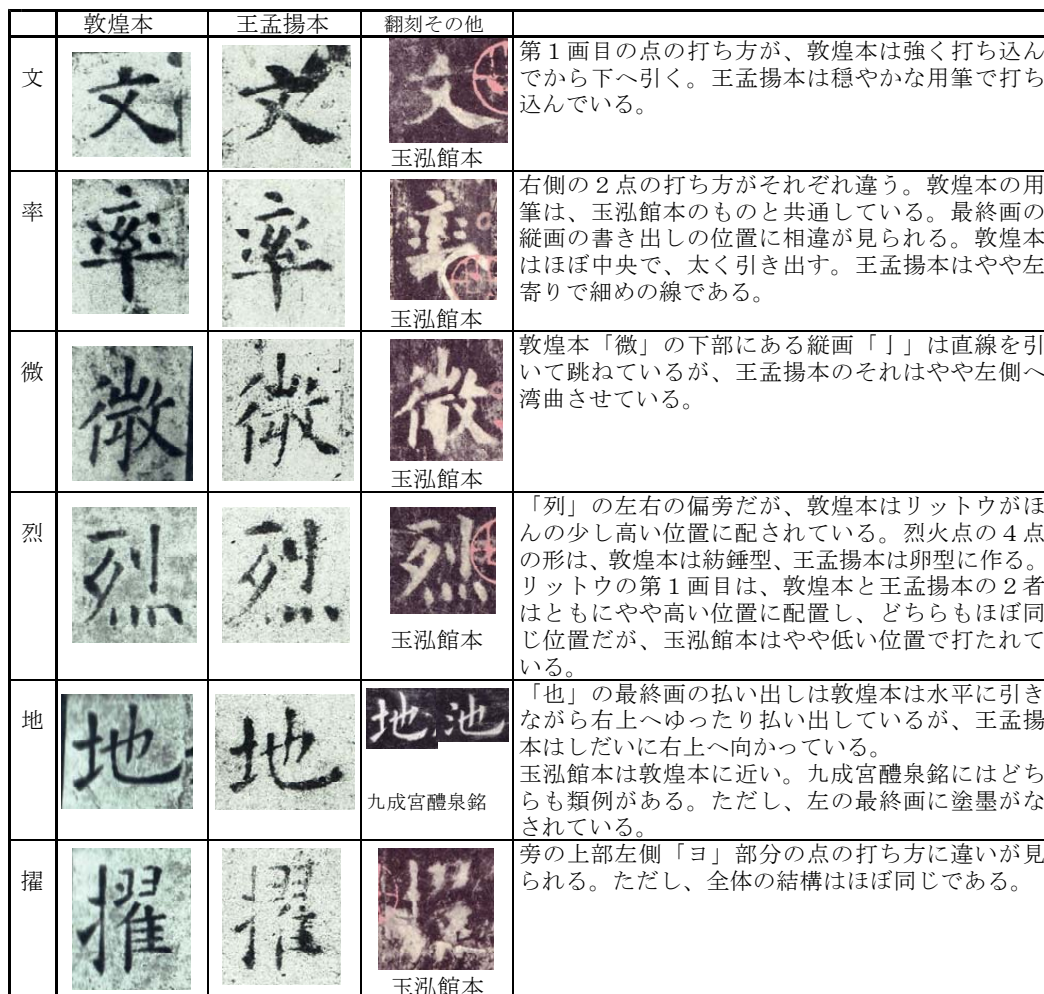 敦煌本 王孟揚本 翻刻その他
文
文 文 文
玉泓館本
第１画目の点の打ち方が、敦煌本は強く打ち込ん
でから下へ引く。王孟揚本は穏やかな用筆で打ち
込んでいる。
率
率 率 率
玉泓館本
右側の２点の打ち方がそれぞれ違う。敦煌本の用
筆は、玉泓館本のものと共通している。最終画の
縦画の書き出しの位置に相違が見られる。敦煌本
はほぼ中央で、太く引き出す。王孟揚本はやや左
寄りで細めの線である。
微
微 微 微
玉泓館本
敦煌本「微」の下部にある縦画「亅」は直線を引
いて跳ねているが、王孟揚本のそれはやや左側へ
湾曲させている。
烈
烈 烈 烈
玉泓館本
「列」の左右の偏旁だが、敦煌本はリットウがほ
んの少し高い位置に配されている。烈火点の４点
の形は、敦煌本は紡錘型、王孟揚本は卵型に作る。
リットウの第１画目は、敦煌本と王孟揚本の２者
はともにやや高い位置に配置し、どちらもほぼ同
じ位置だが、玉泓館本はやや低い位置で打たれて
いる。
地
地 地 地 池
九成宮醴泉銘
「也」の最終画の払い出しは敦煌本は水平に引き
ながら右上へゆったり払い出しているが、王孟揚
本はしだいに右上へ向かっている。
玉泓館本は敦煌本に近い。九成宮醴泉銘にはどち
らも類例がある。ただし、左の最終画に塗墨がな
されている。
擢
擢 擢 擢
玉泓館本
旁の上部左側「ヨ」部分の点の打ち方に違いが見
られる。ただし、全体の結構はほぼ同じである。